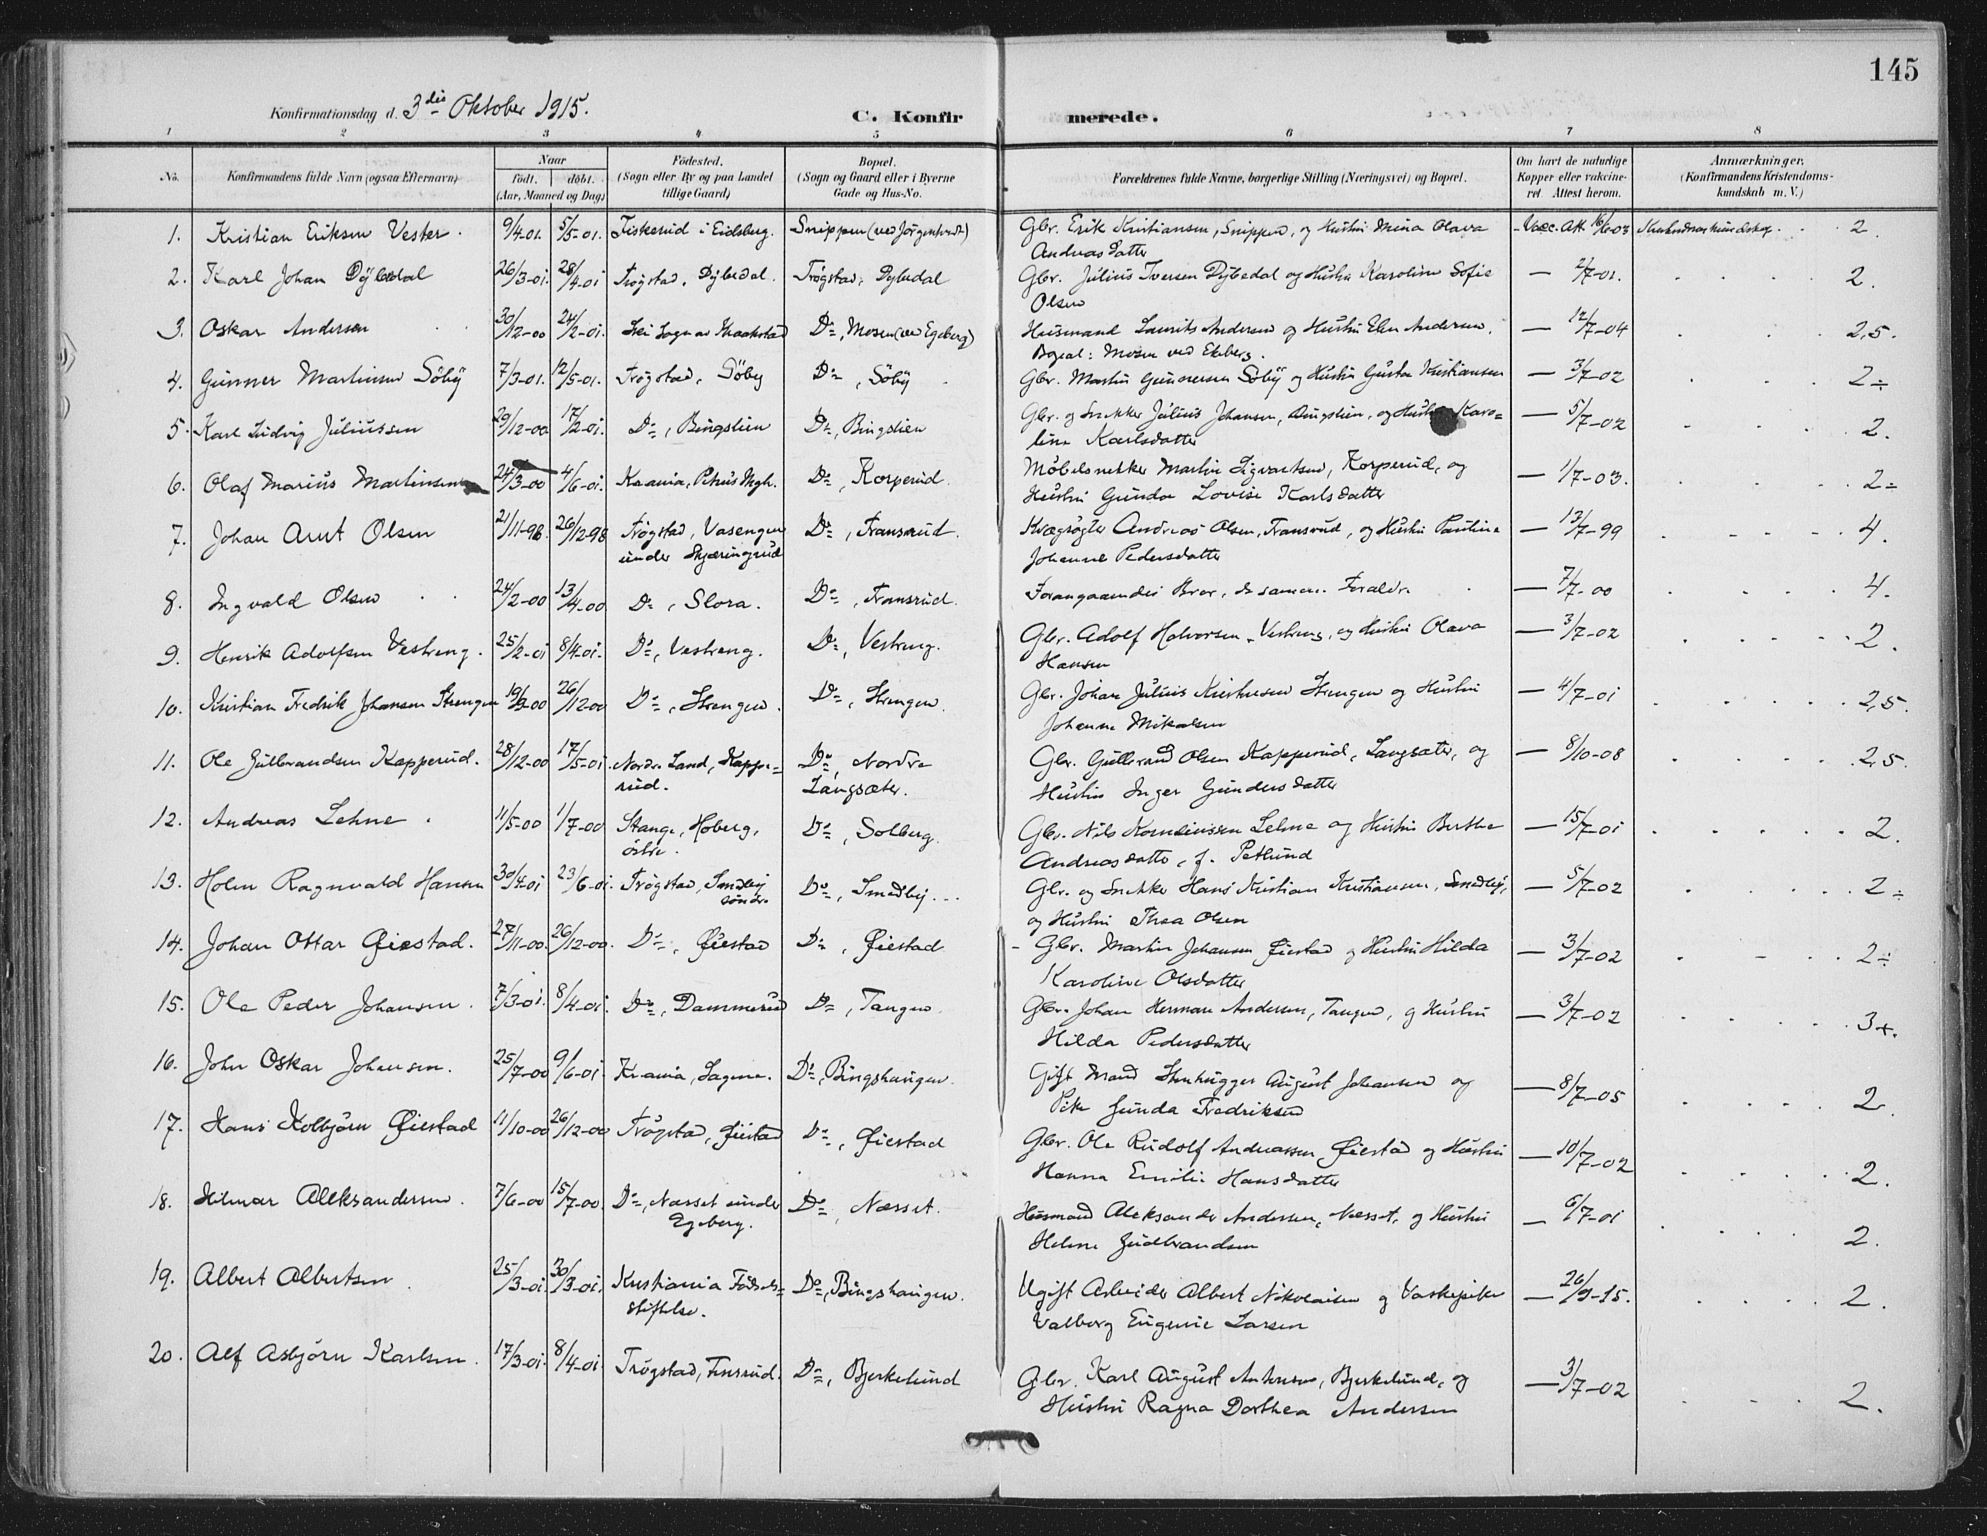 145
Konfirmationsdag d. 3die Oktober 1915.
C. Konfirmerede.
1 2 3 4 5 6 7 8
No. Konfirmandens fulde Navn (ogsaa Efternavn) Naar født. døbt. (Aar, Maaned og Dag) Fødested. (Sogn eller By og paa Landet tillige Gaard) Bopæl. (Sogn og Gaard eller i Byerne Gade og Hus-No. Forældrenes fulde Navne, borgerlige Stilling (Næringsvei) og Bopæl. Om havt de naturlige Kopper eller vakcineret. Attest herom. Anmærkninger. (Konfirmandens Kristendomskundskab m. V.)
1. Kristian Eriksen Vester. 9/4-01. 5/5-01. Fiskerud i Eidsberg. Snippen (ved Jørgentvedt) Gbr. Erik Kristiansen, Snippen, og Hustru Mina Olava Andreasdatter - Vacc. Att. 16/6-03 Kristendomskundskap 2.
2. Karl Johan Dybedal 26/3-01. 28/4-01 Trøgstad, Dybedal. Trøgstad, Dybedal Gbr. Julius Iversen Dybedal og Hustru Karoline Sofie Olsen — 2/7-01. 2.
3. Oskar Andersen 30/12-00 24/2-01. Ski Sogn av Kraakstad Do, Mosen (ved Egeberg) Husmand Laurits Andersen og Hustru Elen Andersen, Bopæl: Mosen ved Ekeberg. — 12/7-04 2,5.
4. Gunner Martinsen Søby 7/3-01. 12/5-01. Trøgstad, Søby Do, Søby Gbr. Martin Gunnersen Søby og Hustru Gusta Kristiansen — 3/7-02 2÷
5. Karl Ludvig Juliussen 29/12-00 17/2-01. Do, Bingslien Do, Bingslien Gbr. og Snekker Julius Johansen, Bingslien, og Hustru Karoline Karlsdatter — 5/7-02 2.
6. Olaf Marius Martinsen 24/3-00 4/6-01. Kr.ania, Petrus Mgh. Do, Korperud. Møbelsnekker Martin Sigvartsen, Korperud, og Hustru Gunda Lovise Karlsdatter — 1/7-03. 2÷
7. Johan Arnt Olsen 21/11-98. 26/12-98 Trøgstad, Vasengen under Skjæringrud Do, Fransrud. Kvægrøgter Andreas Olsen, Fransrud, og Hustru Pauline Johanne Pedersdatter — 13/7-99 4.
8. Ingvald Olsen 24/2-00 13/4-00 Do, Slora. Do, Fransrud. Forangaaendes Bror, de samme Foreldr. — 7/7-00 4.
9. Henrik Adolfsen Vestreng. 25/2-01 8/4-01. Do, Vestreng. Do, Vestreng. Gbr. Adolf Halvorsen Vestreng, og Hustru Olava Hansen — 3/7-02 2.
10. Kristian Fredrik Johansen Strengen 19/9-00 26/12-00 Do, Strengen. Do, Strengen. Gbr. Johan Julius Kristiansen Strengen og Hustru Johanne Mikalsen — 4/7-01 2,5.
11. Ole Gulbrandsen Kapperud. 28/12-00 17/5-01. Nordre Land, Kapperud. Do, Nordre Langsæter. Gbr. Gulbrand Olsen Kapperud, Langsæter, og Hustru Inger Gundersdatter — 8/10-08 2,5.
12. Andreas Lehne. 11/5-00 1/7-00 Stange, Hoberg, østre. Do, Solberg. Gbr. Nils Korneliussen Lehne og Hustru Berthe Andreasdatter, f. Petlund — 15/7-01 2.
13. Holm Ragnvald Hansen 30/4-01 23/6-01. Trøgstad, Smedby søndre Do, Smedby Gbr. og Snekker Hans Kristian Kristiansen, Smedby, og Hustru Thea Olsen — 5/7-02 2÷
14. Johan Ottar Øiestad. 27/11-00. 26/12-00. Do, Øiestad Do, Øiestad Gbr. Martin Johansen Øiestad og Hustru Hilda Karoline Olsdatter — 3/7-02 2÷
15. Ole Peder Johansen. 7/3-01. 8/4-01. Do, Dammerud Do, Tangen. Gbr. Johan Herman Andersen, Tangen, og Hustru Hilda Pedersdatter — 3/7-02 3+.
16. John Oskar Johansen. 25/7-00 9/6-01. Kr.ania, Sagene. Do, Bingshaugen. Gift Mand Stenhugger August Johansen og Pike Gunda Fredriksen — 8/7-05 2.
17. Hans Kolbjørn Øiestad 11/10-00 26/12-00 Trøgstad, Øiestad Do, Øiestad Gbr. Ole Rudolf Andreassen Øiestad og Hustru Hanna Emilie Hansdatter — 10/7-02 2.
18. Hilmar Aleksandersen. 7/6-00 15/7-00. Do, Næsset under Egeberg. Do, Næsset. Husmand Aleksander Andersen, Næsset, og Hustru Helene Gudbrandsen — 6/7-01 2.
19. Albert Albertsen 25/3-01. 30/3-01. Kristiania Fødselsstiftelse. Do, Bingshaugen. Ugift Arbeider Albert Nikolaisen og Vaskepike Valborg Eugenie Larsen — 26/9-15. 2.
20. Alf Asbjørn Karlsen. 17/3-01. 8/4-01. Trøgstad, Finsrud. Do, Bjerkelund Gbr. Karl August Antonsen, Bjerkelund, og Hustru Ragna Dorthea Andersen — 3/7-02 2.